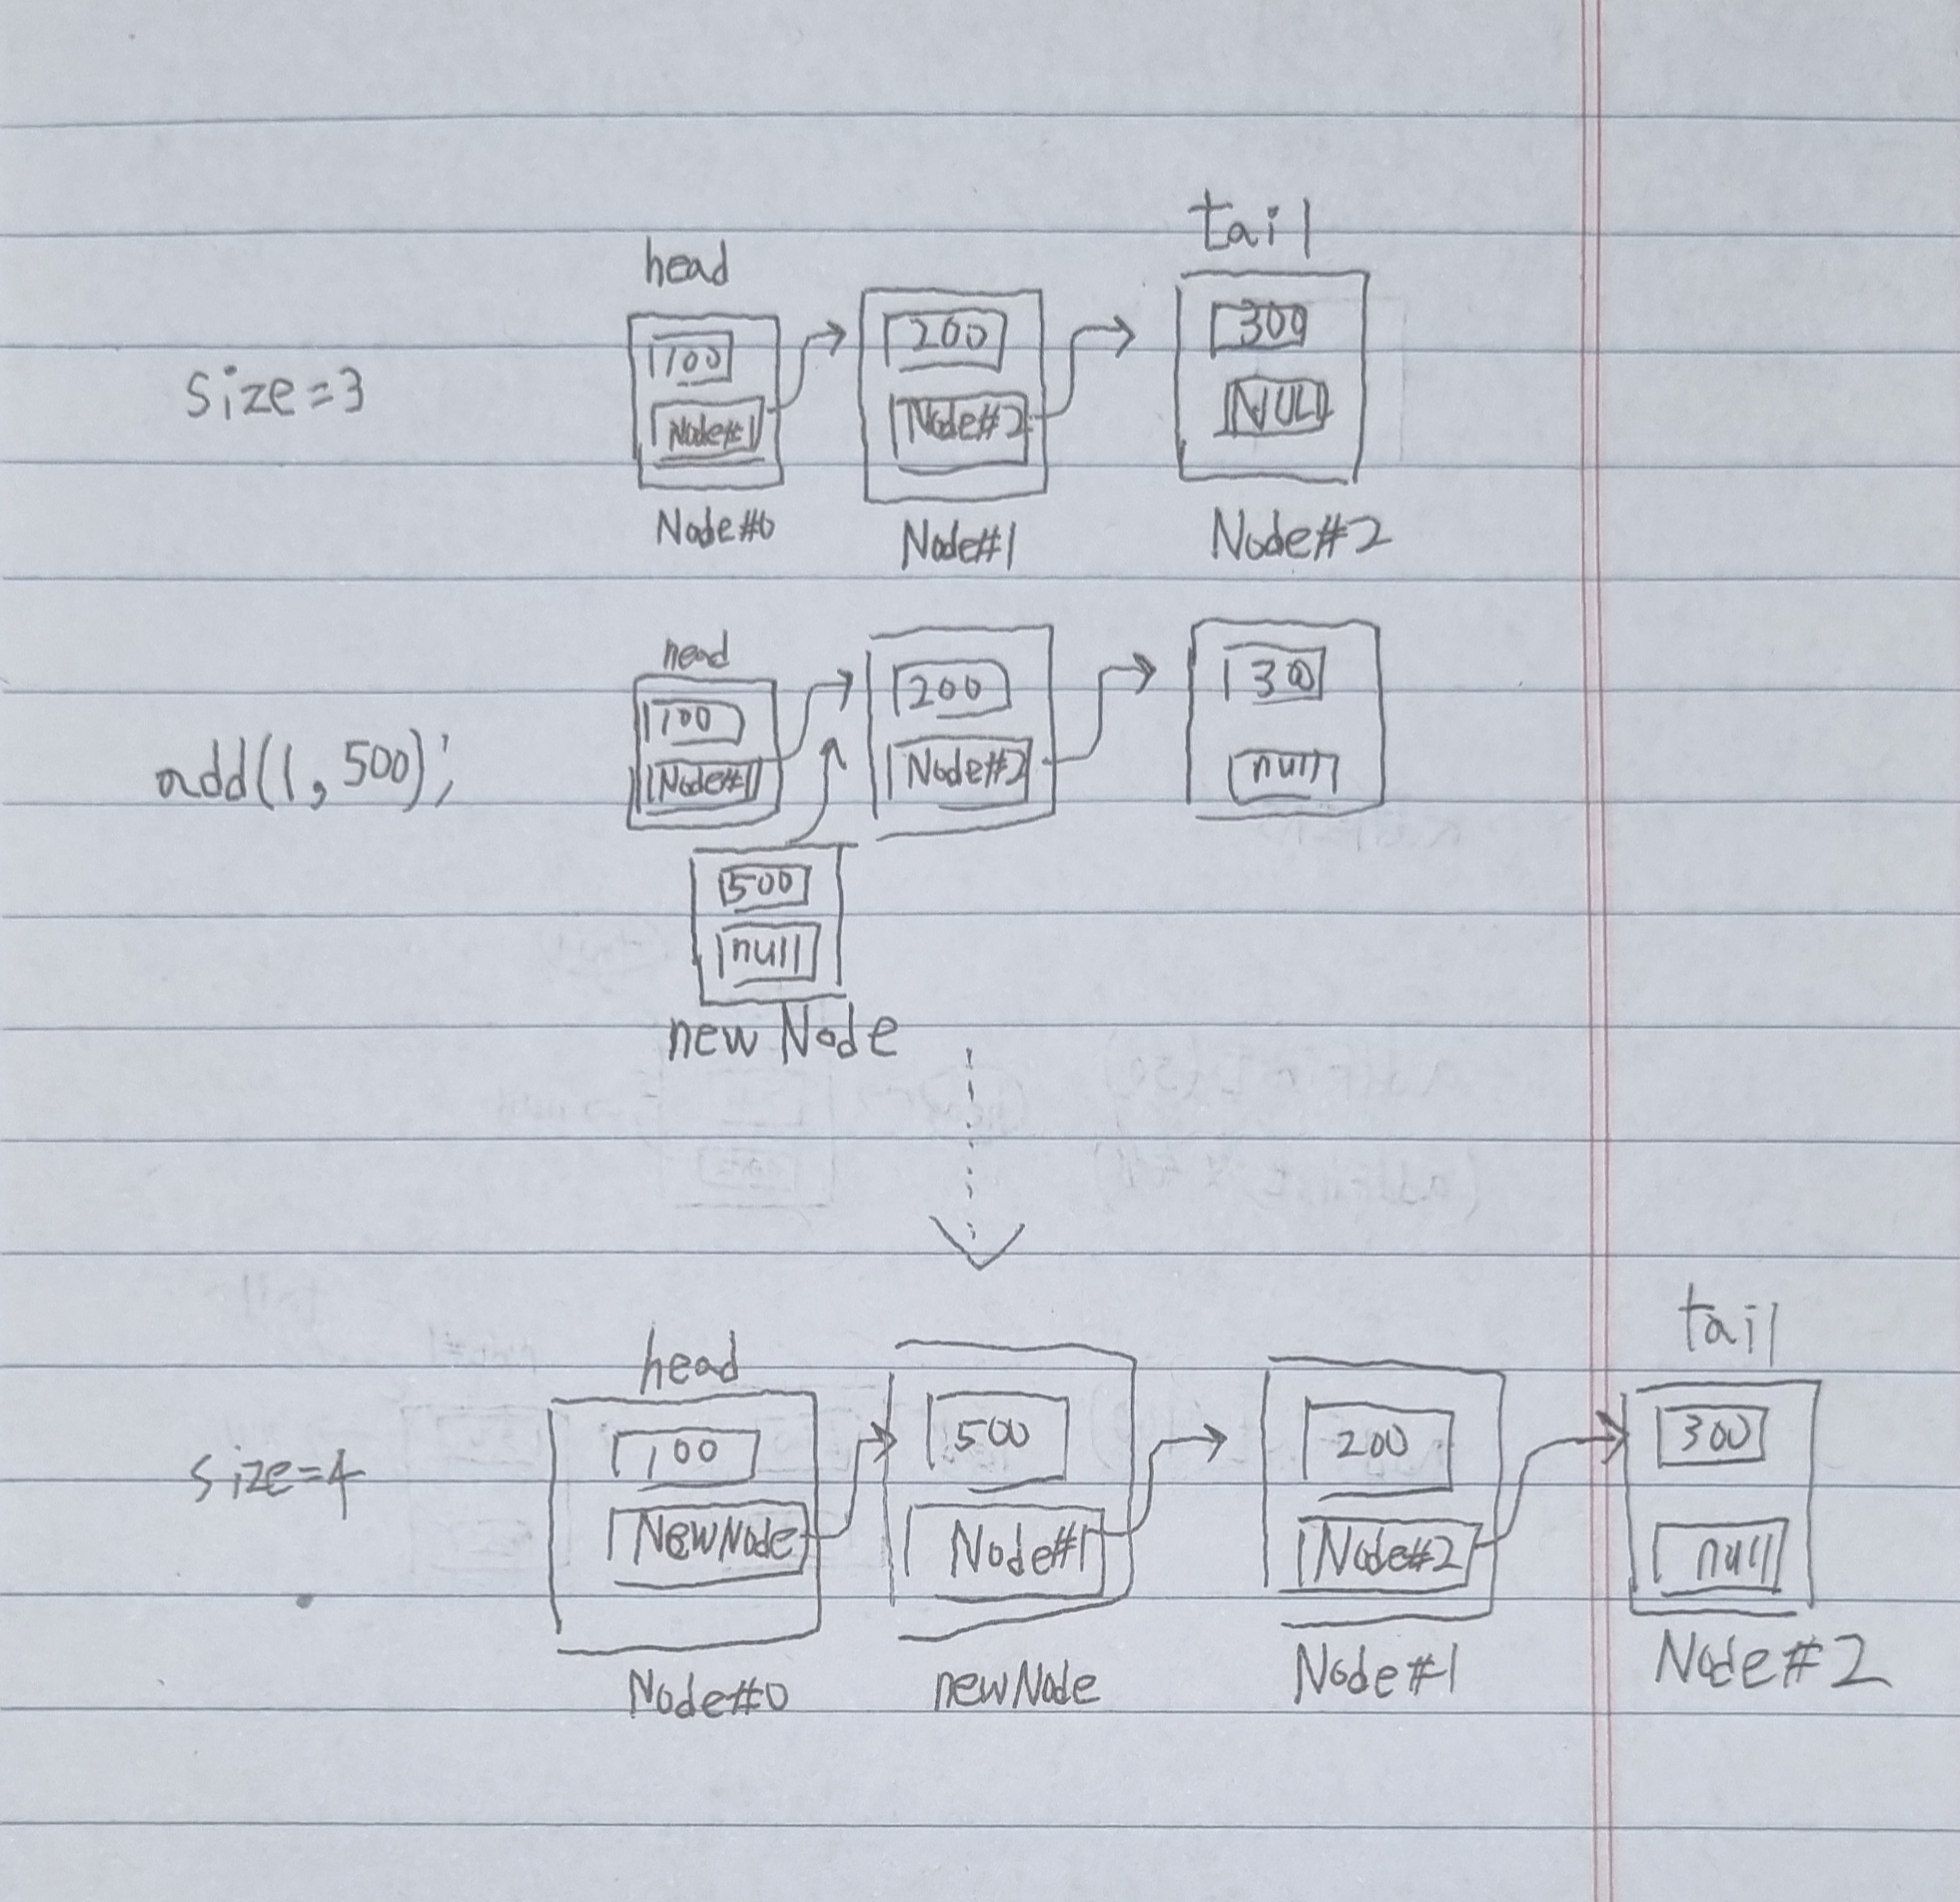 head
tail
size=3
100
200
300
Node#1
Node#2
NULL
Node#0
Node#1
Node#2
head
add(1, 500);
100
200
300
Node#1
Node#2
null
500
null
new Node
head
tail
size=4
100
500
200
300
NewNode
Node#1
Node#2
null
Node#0
newNode
Node#1
Node#2